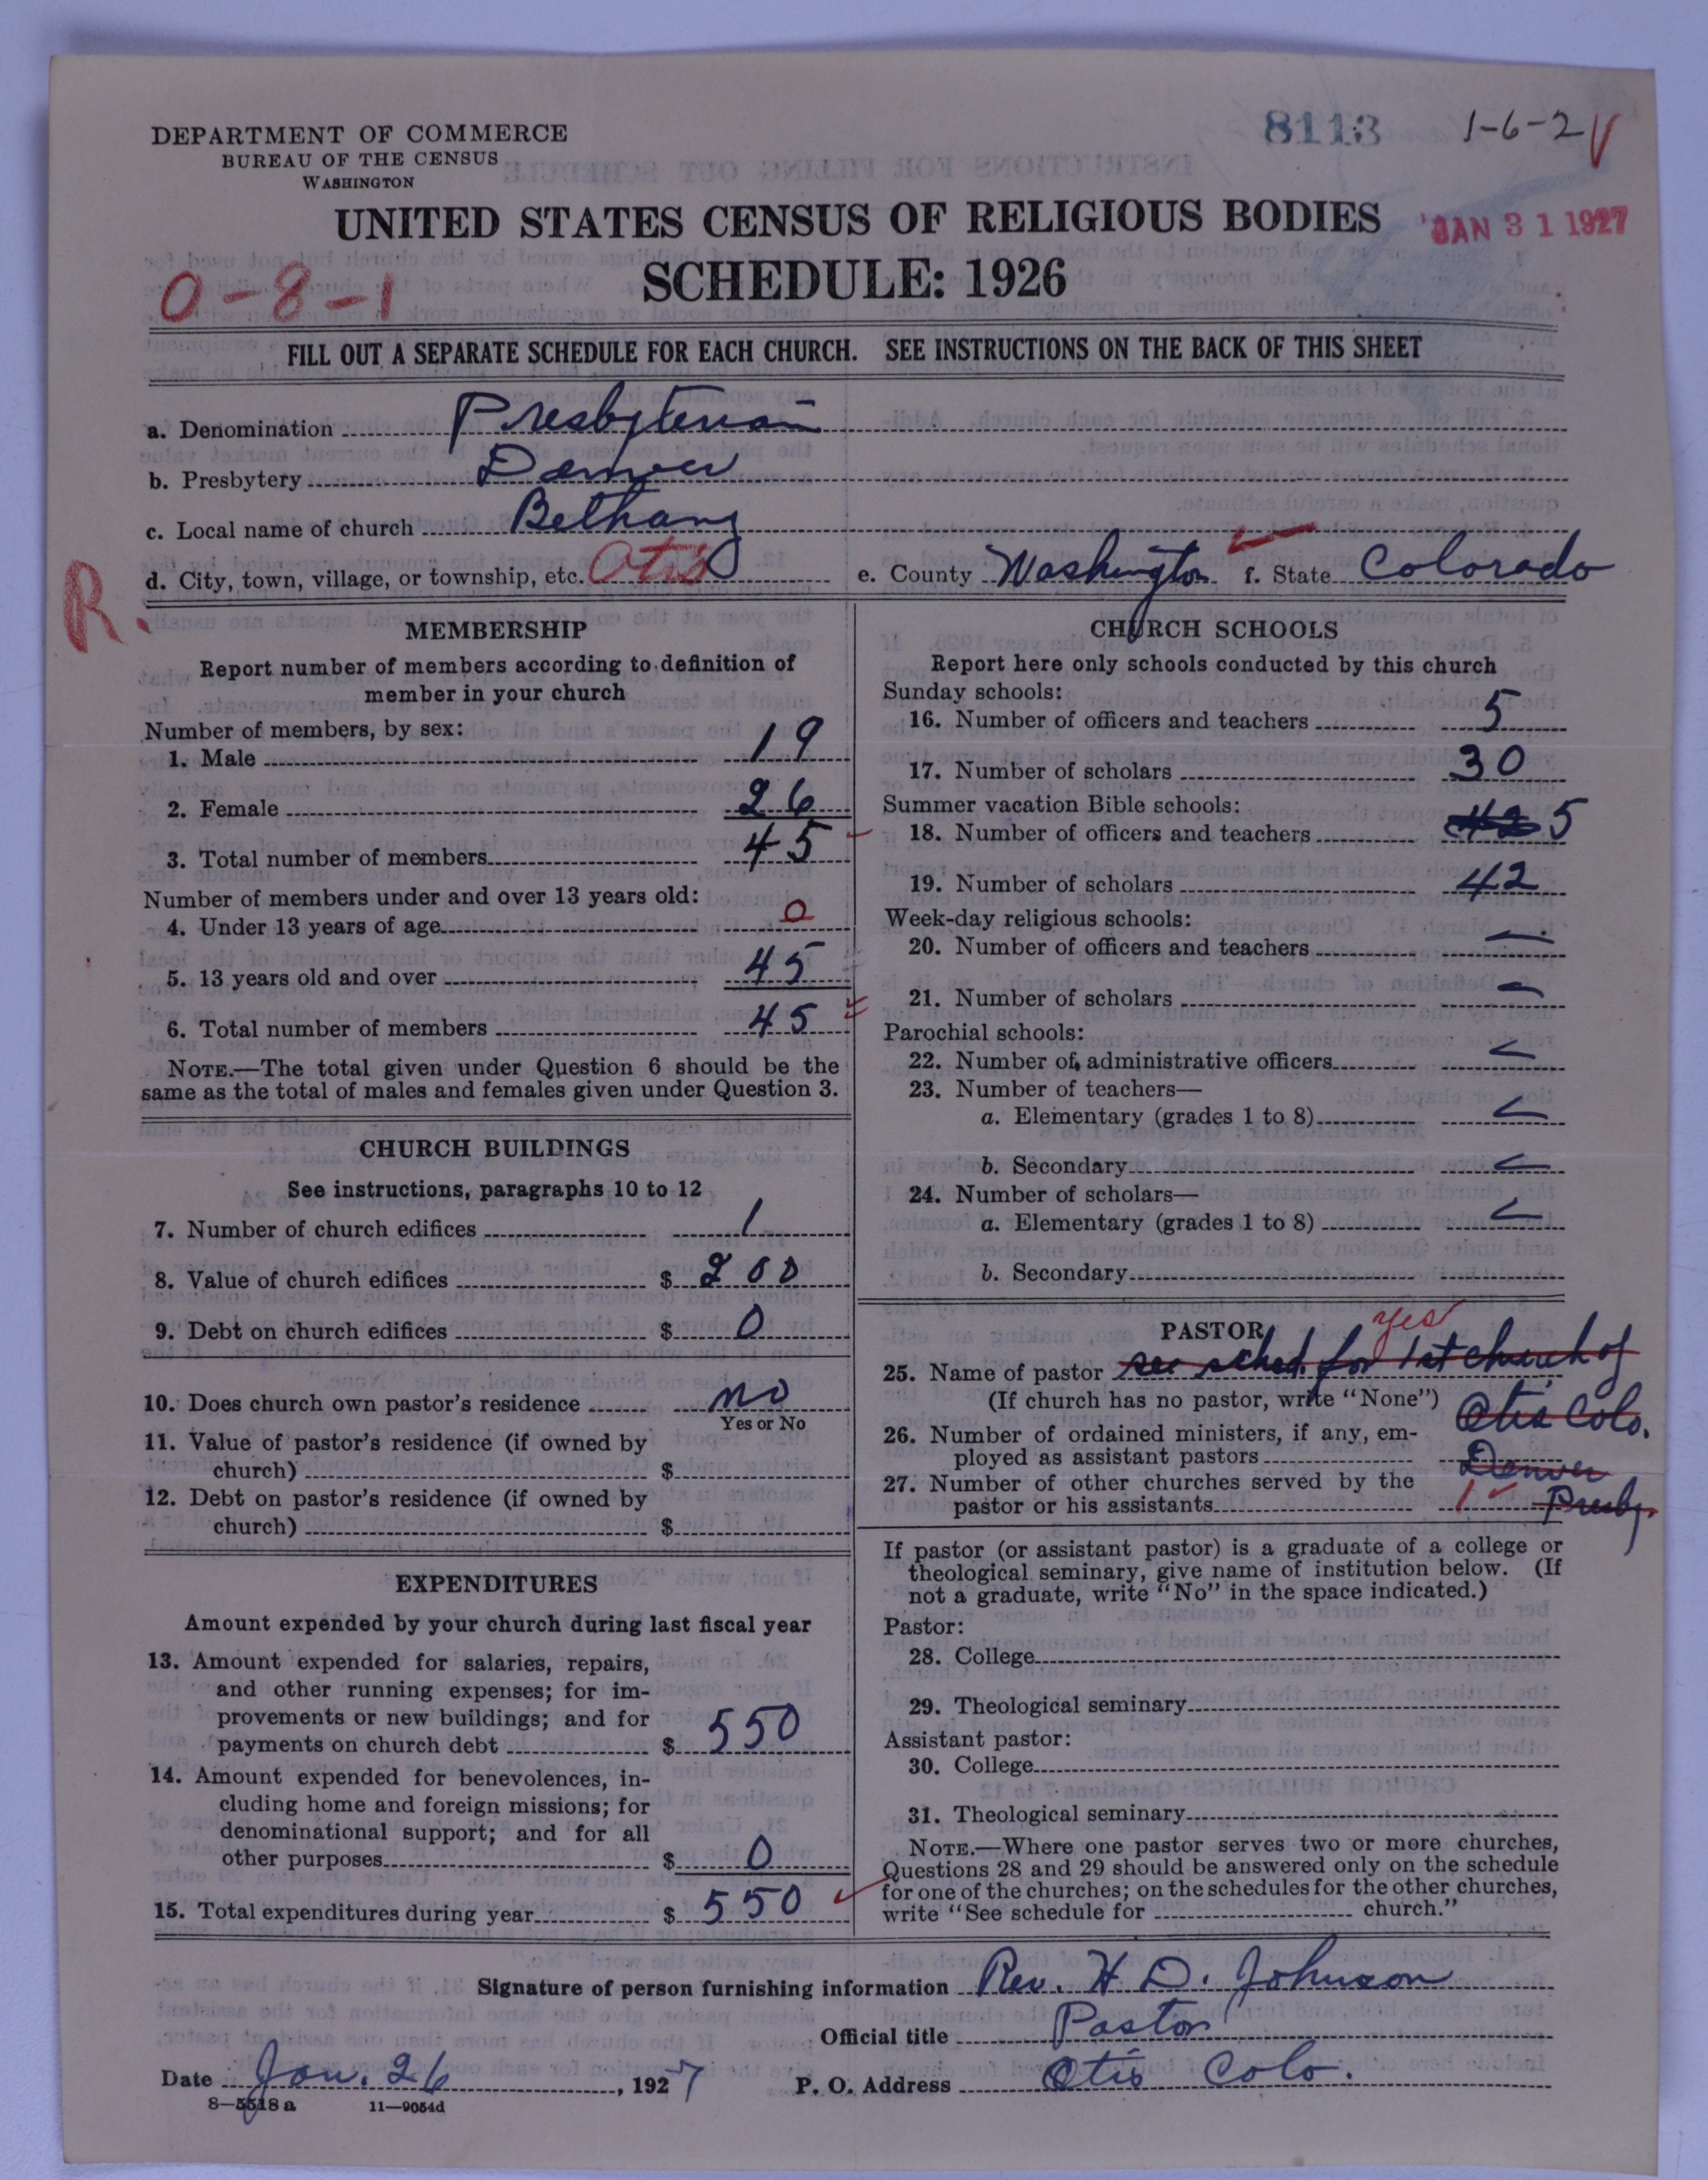 DEPARTMENT OF COMMERCE
BUREAU OF THE CENSUS
WASHINGTON
8113
1-6-2
UNITED STATES CENSUS OF RELIGIOUS BODIES
JAN 31 1927
SCHEDULE: 1926
0-8-1
FILL OUT A SEPARATE SCHEDULE FOR EACH CHURCH. SEE INSTRUCTIONS ON THE BACK OF THIS SHEET
a. Denomination Presbyterian
b. Presbytery Denver
c. Local name of church Bethany
d. City, town, village, or township, etc. Otis e. County Washington f. State Colorado
R.
MEMBERSHIP
Report number of members according to definition of
member in your church
Number of members, by sex:
1. Male 19
2. Female 26
3. Total number of members 45
Number of members under and over 13 years old:
4. Under 13 years of age 0
5. 13 years old and over 45
6. Total number of members 45
NOTE.—The total given under Question 6 should be the
same as the total of males and females given under Question 3.
CHURCH BUILDINGS
See instructions, paragraphs 10 to 12
7. Number of church edifices 1
8. Value of church edifices $ 200
9. Debt on church edifices $ 0
10. Does church own pastor's residence no
Yes or No
11. Value of pastor's residence (if owned by
church) $
12. Debt on pastor's residence (if owned by
church) $
EXPENDITURES
Amount expended by your church during last fiscal year
13. Amount expended for salaries, repairs,
and other running expenses; for im-
provements or new buildings; and for
payments on church debt $ 550
14. Amount expended for benevolences, in-
cluding home and foreign missions; for
denominational support; and for all
other purposes $ 0
15. Total expenditures during year $ 550
CHURCH SCHOOLS
Report here only schools conducted by this church
Sunday schools:
16. Number of officers and teachers 5
17. Number of scholars 30
Summer vacation Bible schools:
18. Number of officers and teachers 42 5
19. Number of scholars 42
Week-day religious schools:
20. Number of officers and teachers —
21. Number of scholars —
Parochial schools:
22. Number of administrative officers
23. Number of teachers—
a. Elementary (grades 1 to 8)
b. Secondary
24. Number of scholars—
a. Elementary (grades 1 to 8)
b. Secondary
PASTOR
yes
25. Name of pastor see sched for 1st church of
(If church has no pastor, write "None") Otis Colo.
26. Number of ordained ministers, if any, em-
ployed as assistant pastors Denver
27. Number of other churches served by the
pastor or his assistants 1 Presby.
If pastor (or assistant pastor) is a graduate of a college or
theological seminary, give name of institution below. (If
not a graduate, write "No" in the space indicated.)
Pastor:
28. College
29. Theological seminary
Assistant pastor:
30. College
31. Theological seminary
NOTE.—Where one pastor serves two or more churches,
Questions 28 and 29 should be answered only on the schedule
for one of the churches; on the schedules for the other churches,
write "See schedule for church."
Signature of person furnishing information Rev. H. D. Johnson
Official title Pastor
Date Jan. 26, 1927 P. O. Address Otis Colo.
8—5518 a 11—9054d